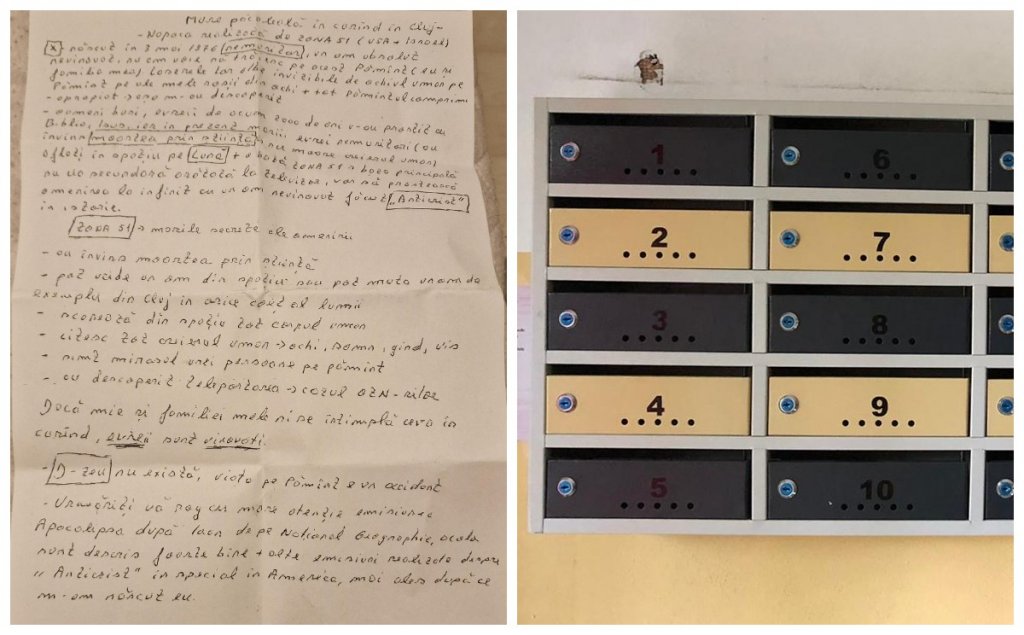 Mare păcăleală în curînd în Cluj-
-Napoca realizată de ZONA 51 (USA + Israel)
X născut în 3 mai 1976 nemuritor, un om absolut
nevinovat, nu am voie să trăiesc pe acest Pămînt (eu și
familia mea) invizibile de ochiul uman pe
Pămînt pe ale mele roșii din ochi + tot Pămîntul comprimi
- apropiat m-au descoperit
- oameni buni, evreii de acum 2000 de ani v-au prostit cu
Biblia, Isus, iar în prezent evrei nemuritori (au
învins moartea prin știință, nu moare creierul uman)
aflați în spațiu pe Lună + o bază ZONA 51 bază principală
nu cea secundară arătată la televizor, vor să prostească
omenirea la infinit cu un om nevinovat făcut „Anticrist"
în istorie.
ZONA 51 → marile secrete ale omenirii
- au învins moartea prin știință
- pot vedea un om din spațiu sau pot muta un om de
exemplu din Cluj în orice colț al lumii
- scanează din spațiu tot corpul uman
- citesc tot creierul uman → ochi, somn, gînd, vis
- simt mirosul unei persoane pe pămînt
- au descoperit teleportarea → cazul OZN-urilor
Dacă mie si familiei mele ni se întimplă ceva în
curînd, evreii sunt vinovați.
- D-zeu nu există, viața pe Pămînt e un accident
- Urmăriți vă rog cu mare atenție emisiunea
Apocalipsa după Ioan de pe National Geographic, acolo
sunt descris foarte bine + alte emisiuni realizate despre
„Anticrist" în special în America, mai ales după ce
m-am născut eu.
1 6
2 7
3 8
4 9
5 10